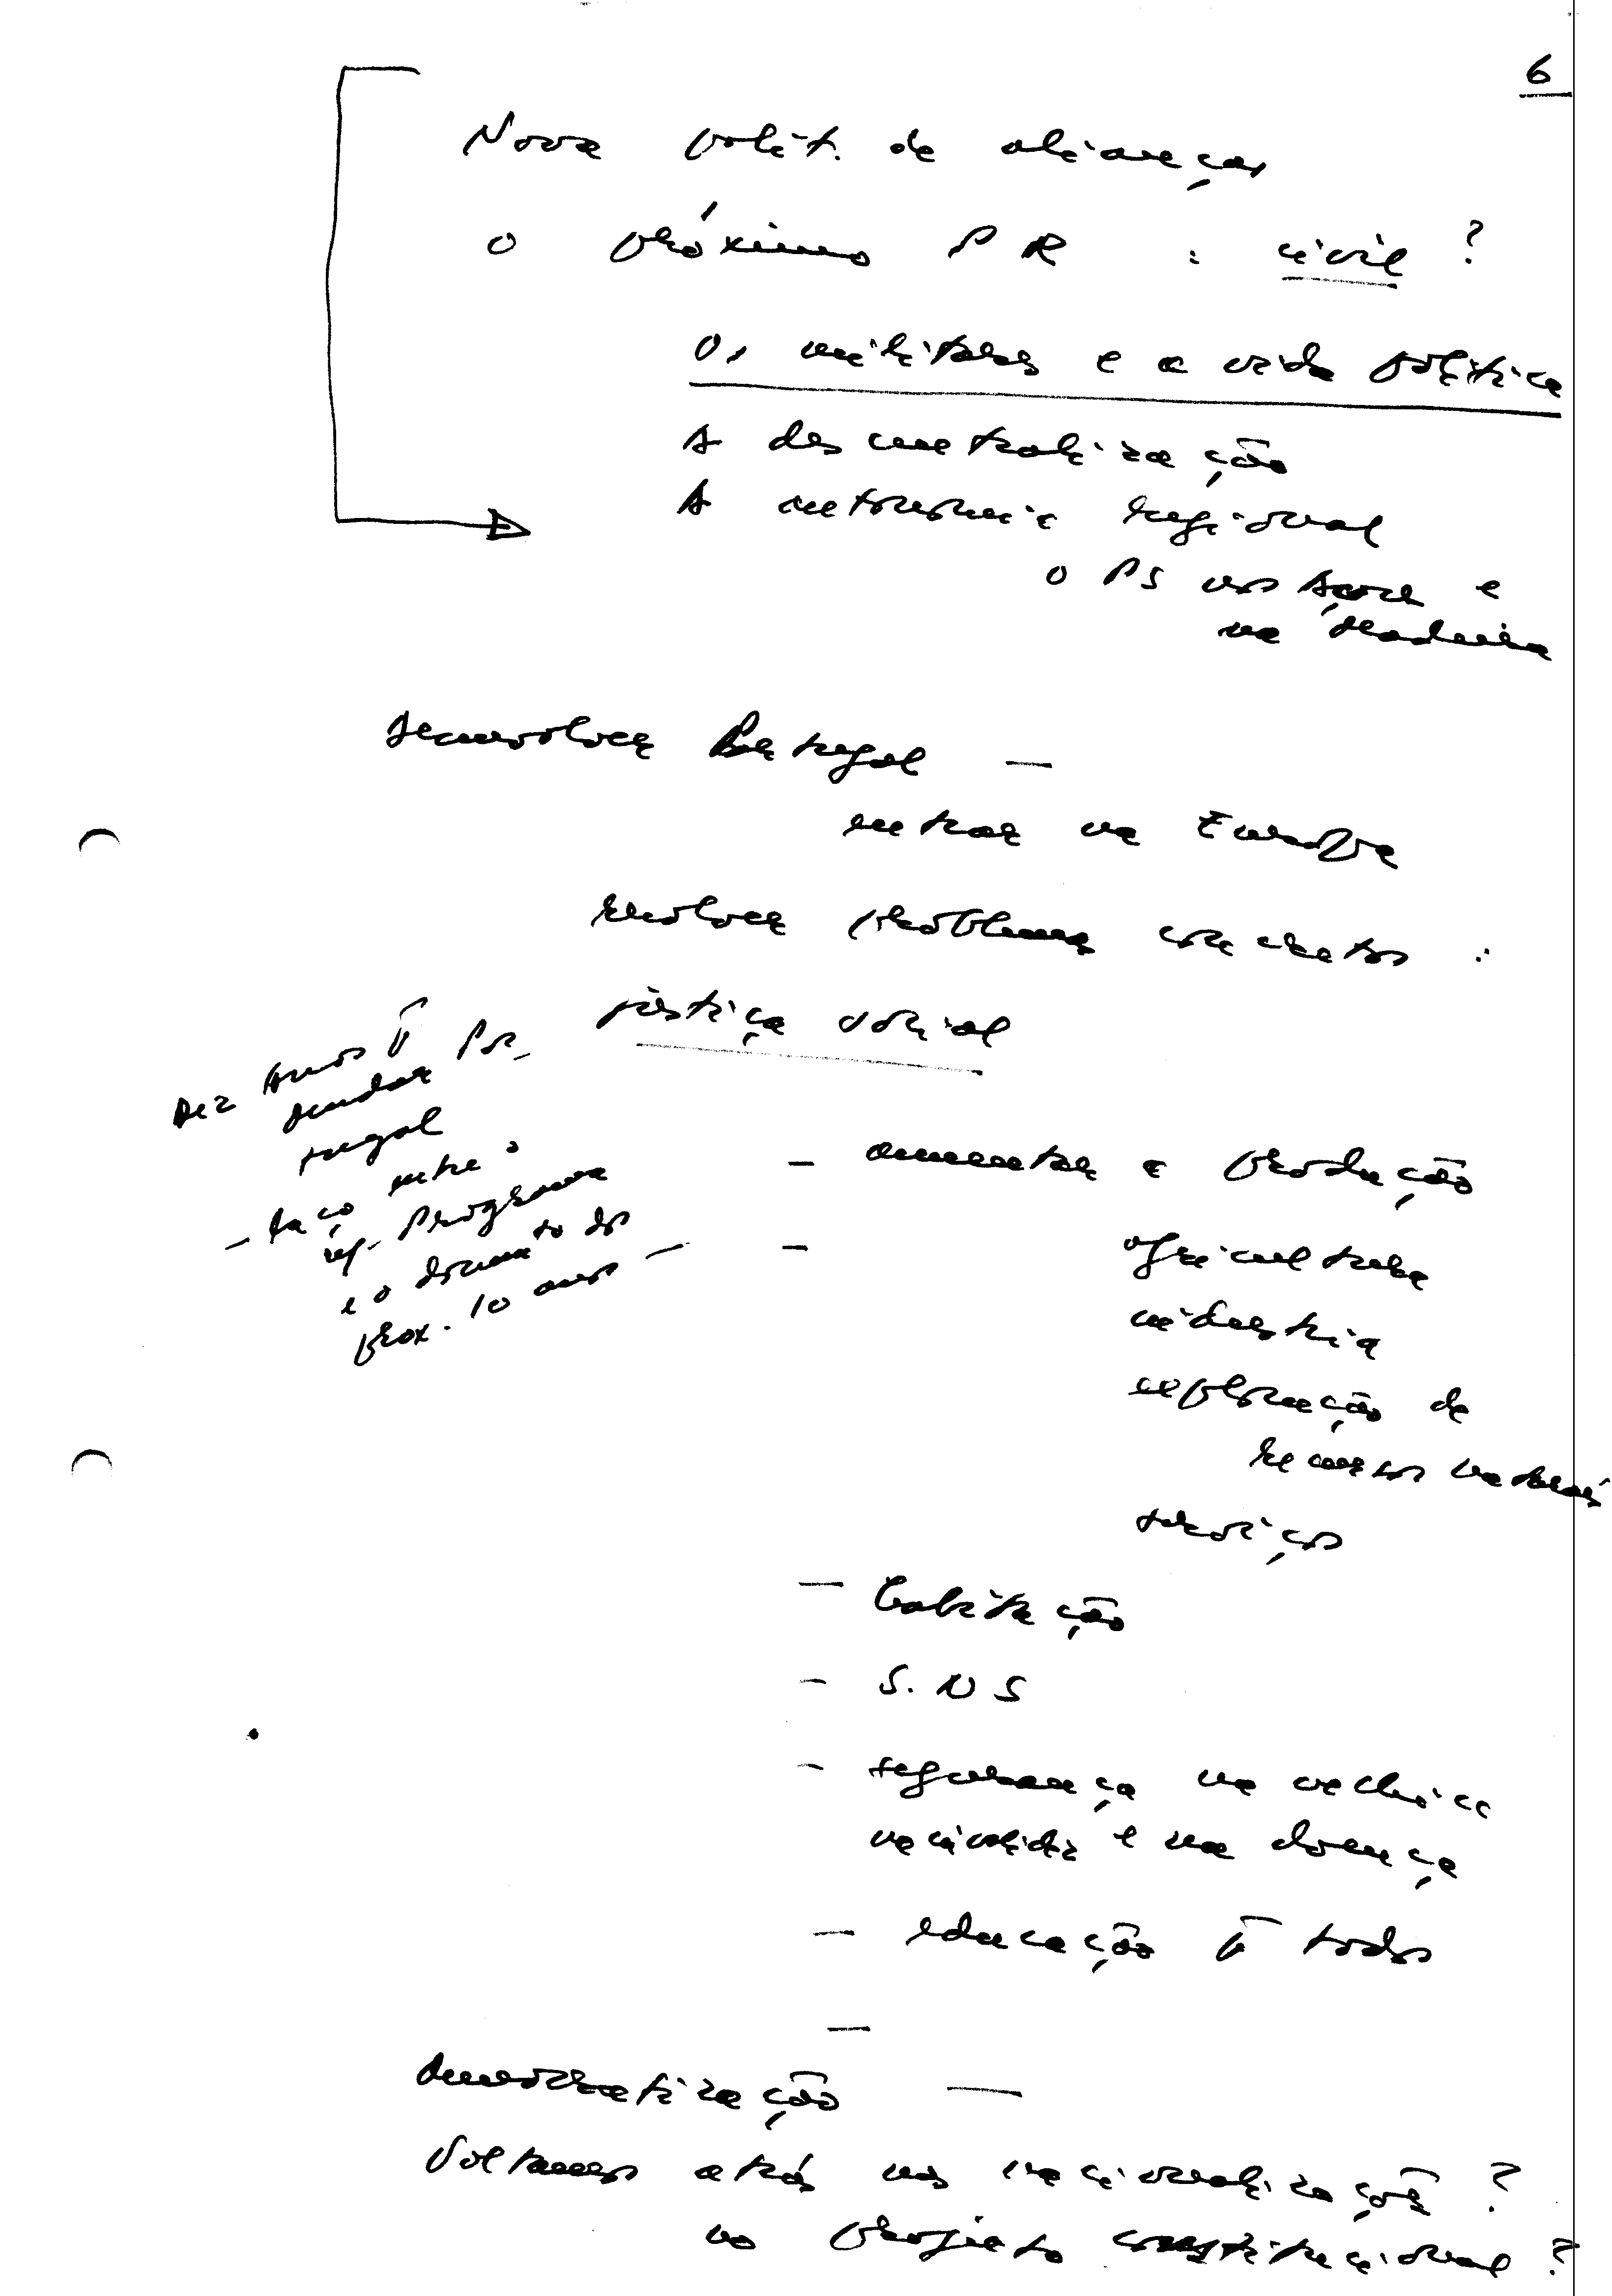 6
Nova polít. de alianças
o próximo PR : civil ?
Os militares e a vida política
A descentralização
A autonomia regional
o PS nos Açores e
na Madeira
Desenvolver Portugal —
entrar na Europa
resolver problemas concretos :
justiça social
Dez anos p̄
mudar Por-
tugal
- laço entre o
Programa
e o documento dos
prox. 10 anos —
- aumentar a produção
- agricultura
indústria
exploração de
recursos naturais
serviços
- habitação
- S. N S
- segurança na velhice
na invalidez e na doença
- educação p̄ todos
—
Democratização —
Voltamos atrás nas nacionalizações ?
no projecto constitucional ?